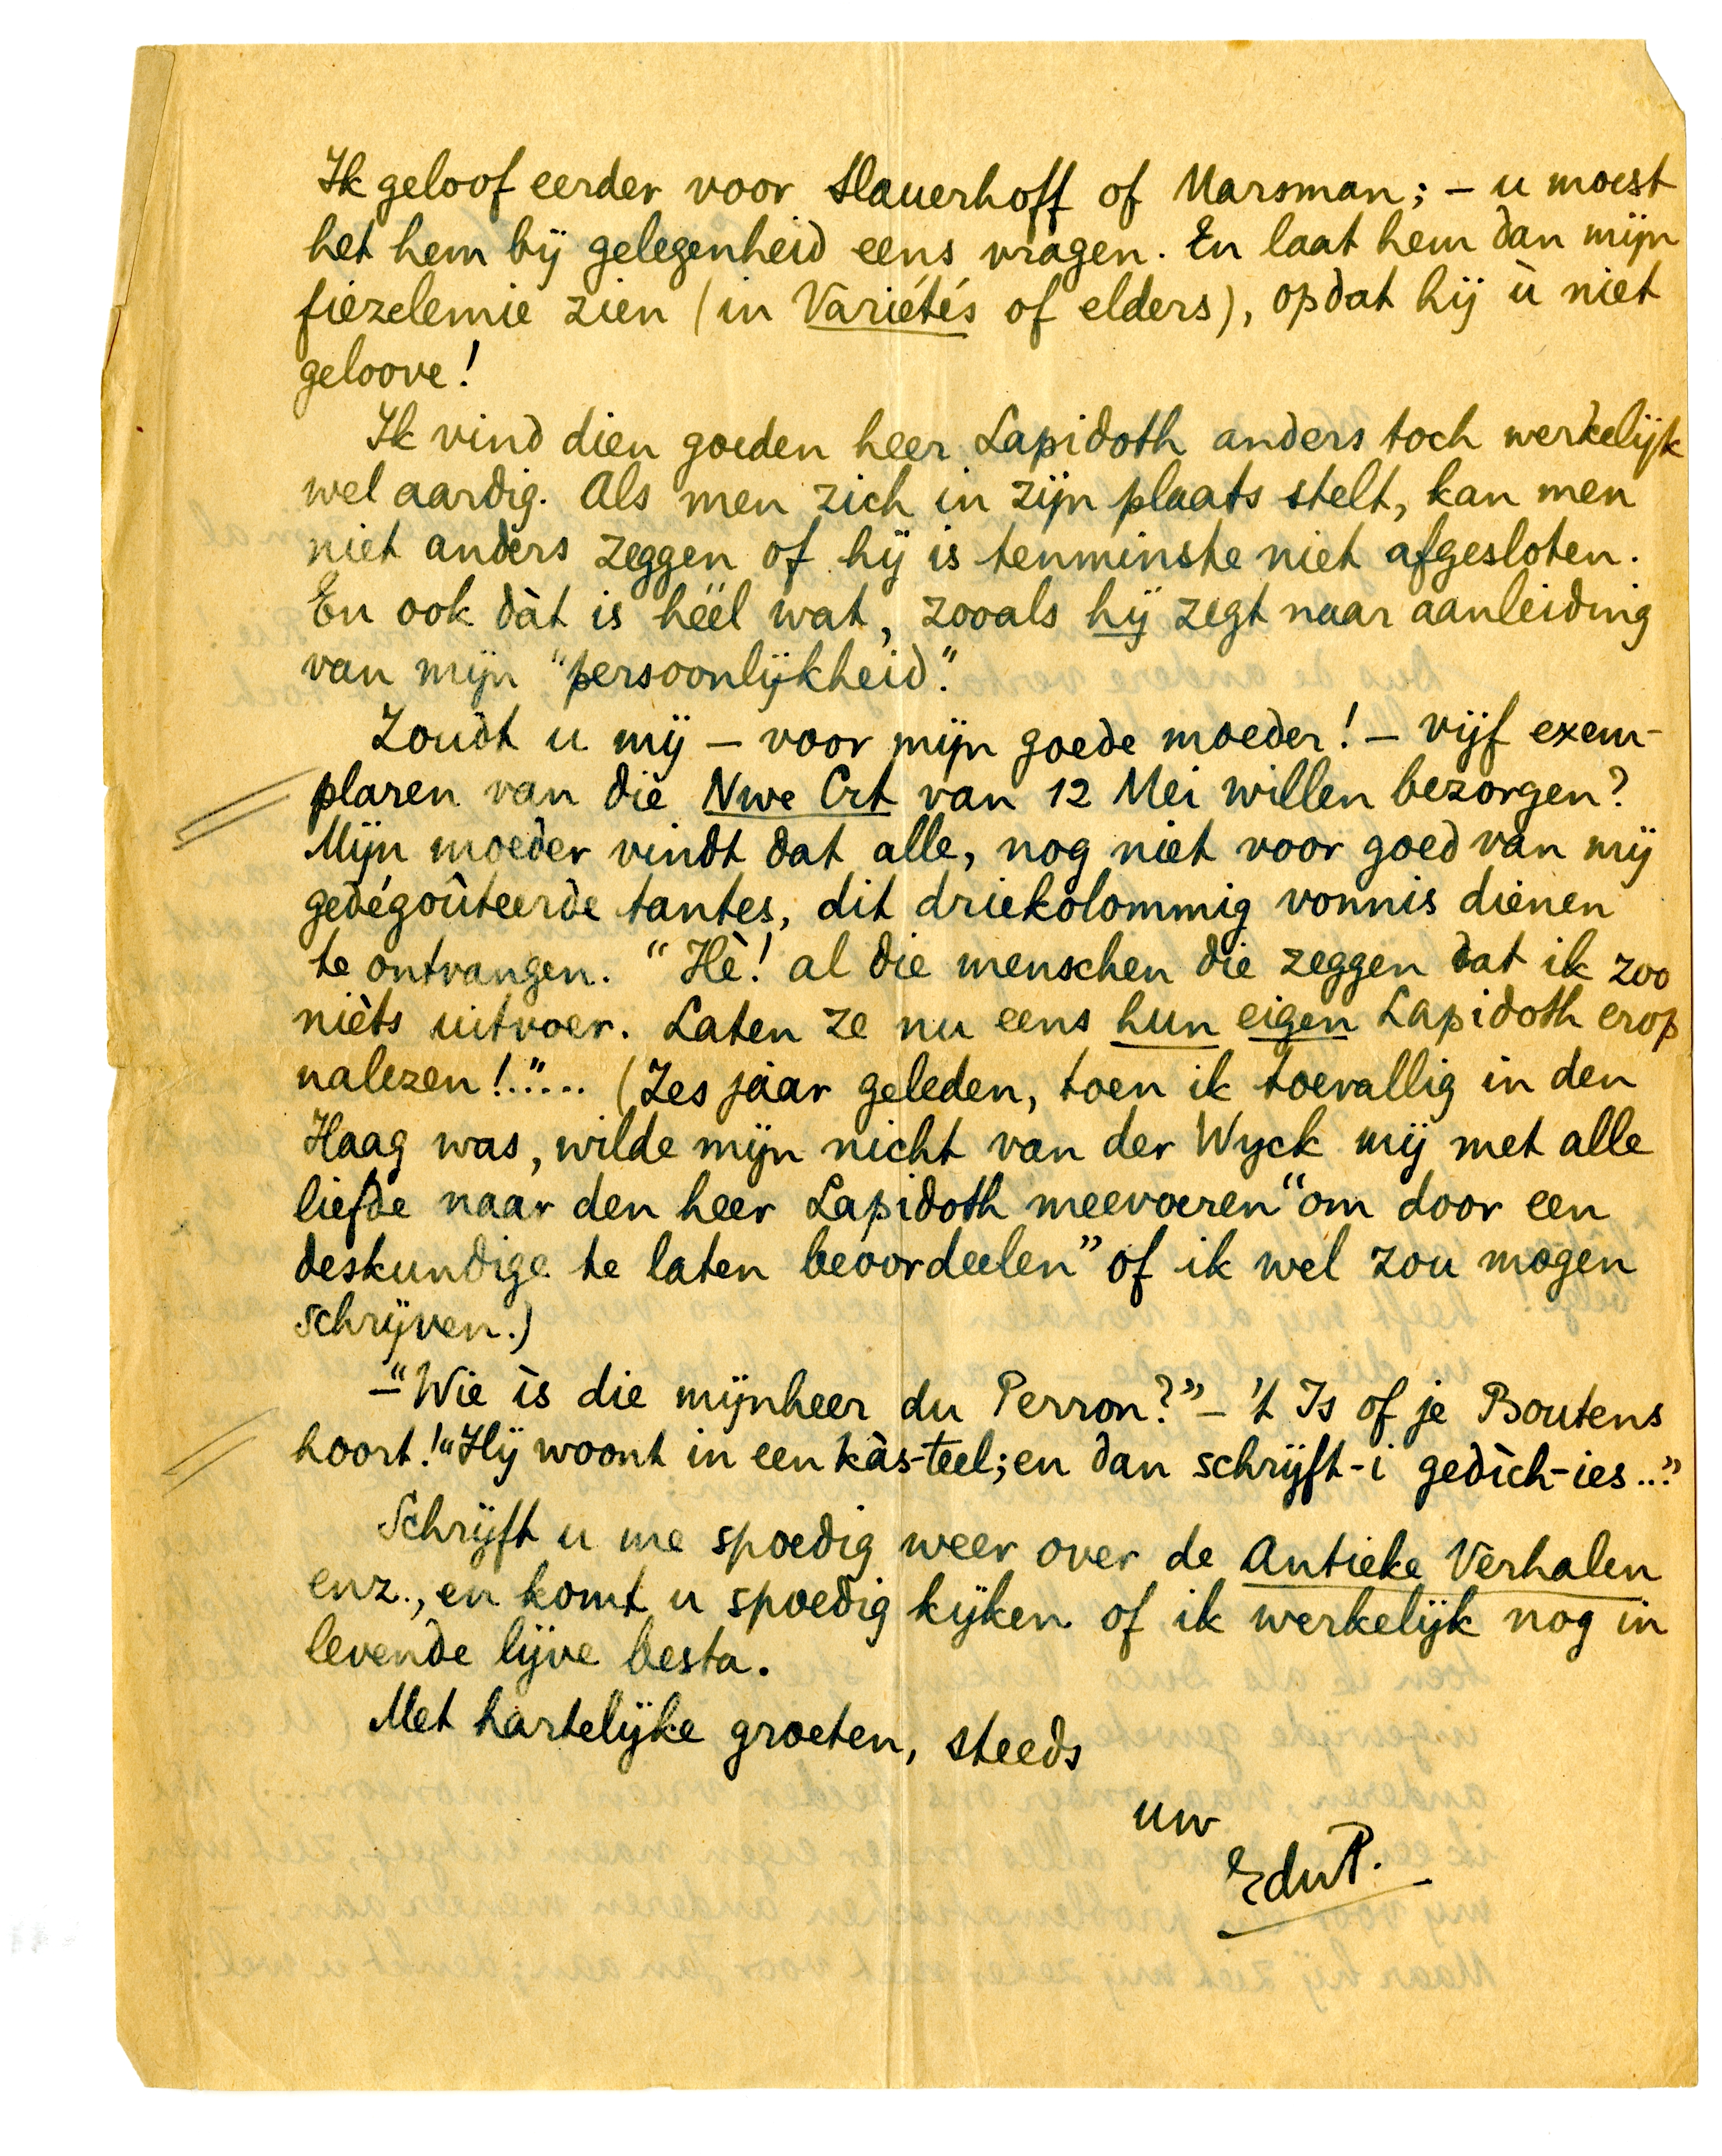 Ik geloof eerder voor Slauerhoff of Marsman; – u moest
het hem bij gelegenheid eens vragen. En laat hem dan mijn
fiezelemie zien (in Variétés of elders), opdat hij ù niet
geloove!
Ik vind dien goeden heer Lapidoth anders toch werkelijk
wel aardig. Als men zich in zijn plaats stelt, kan men
niet anders zeggen of hij is tenminste niet afgesloten.
En ook dàt is héél wat, zooals hij zegt naar aanleiding
van mijn "persoonlijkheid".
Zoudt u mij – voor mijn goede moeder! – vijf exem-
plaren van die Nwe Crt van 12 Mei willen bezorgen?
Mijn moeder vindt dat alle, nog niet voor goed van mij
gedégoûteerde tantes, dit driekolommig vonnis dienen
te ontvangen. "Hè! al die menschen die zeggen dat ik zoo
nièts uitvoer. Laten ze nu eens hun eigen Lapidoth erop
nalezen!"... (Zes jaar geleden, toen ik toevallig in den
Haag was, wilde mijn nicht van der Wyck mij met alle
liefde naar den heer Lapidoth meevoeren "om door een
deskundige te laten beoordeelen" of ik wel zou mogen
schrijven.)
– "Wie is die mijnheer du Perron?" – 't Is of je Boutens
hoort! "Hij woont in een kàs-teel; en dan schrijft-i gedìch-ies..."
Schrijft u me spoedig weer over de Antieke Verhalen
enz., en komt u spoedig kijken of ik werkelijk nog in
levende lijve besta.
Met hartelijke groeten, steeds
uw
EduP.